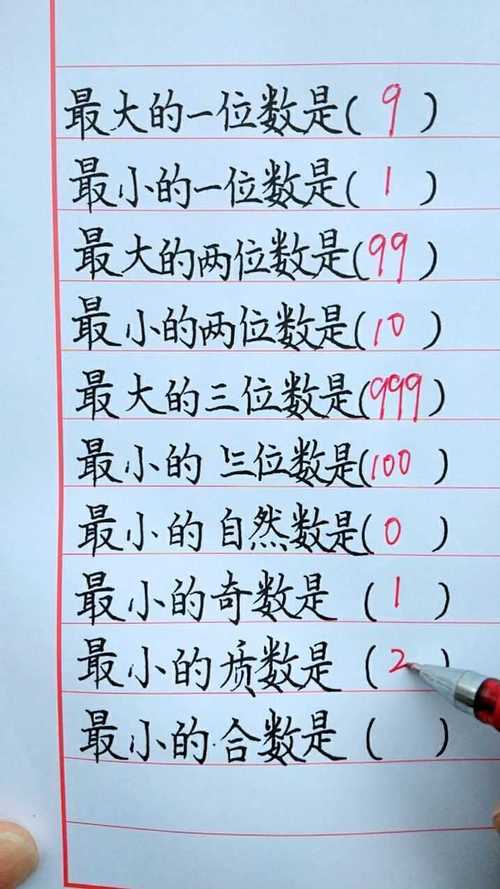 最大的一位数是(9)
最小的一位数是(1)
最大的两位数是(99)
最小的两位数是(10)
最大的三位数是(999)
最小的三位数是(100)
最小的自然数是(0)
最小的奇数是(1)
最小的质数是(2)
最小的合数是( )